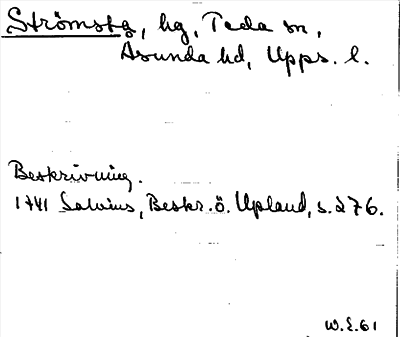 Strömsta, hg, Teda sn,
Åsunda hd, Upps. l.
Beskrivning.
1741 Salvius, Beskr. ö. Upland, s. 276.
W.E. 61